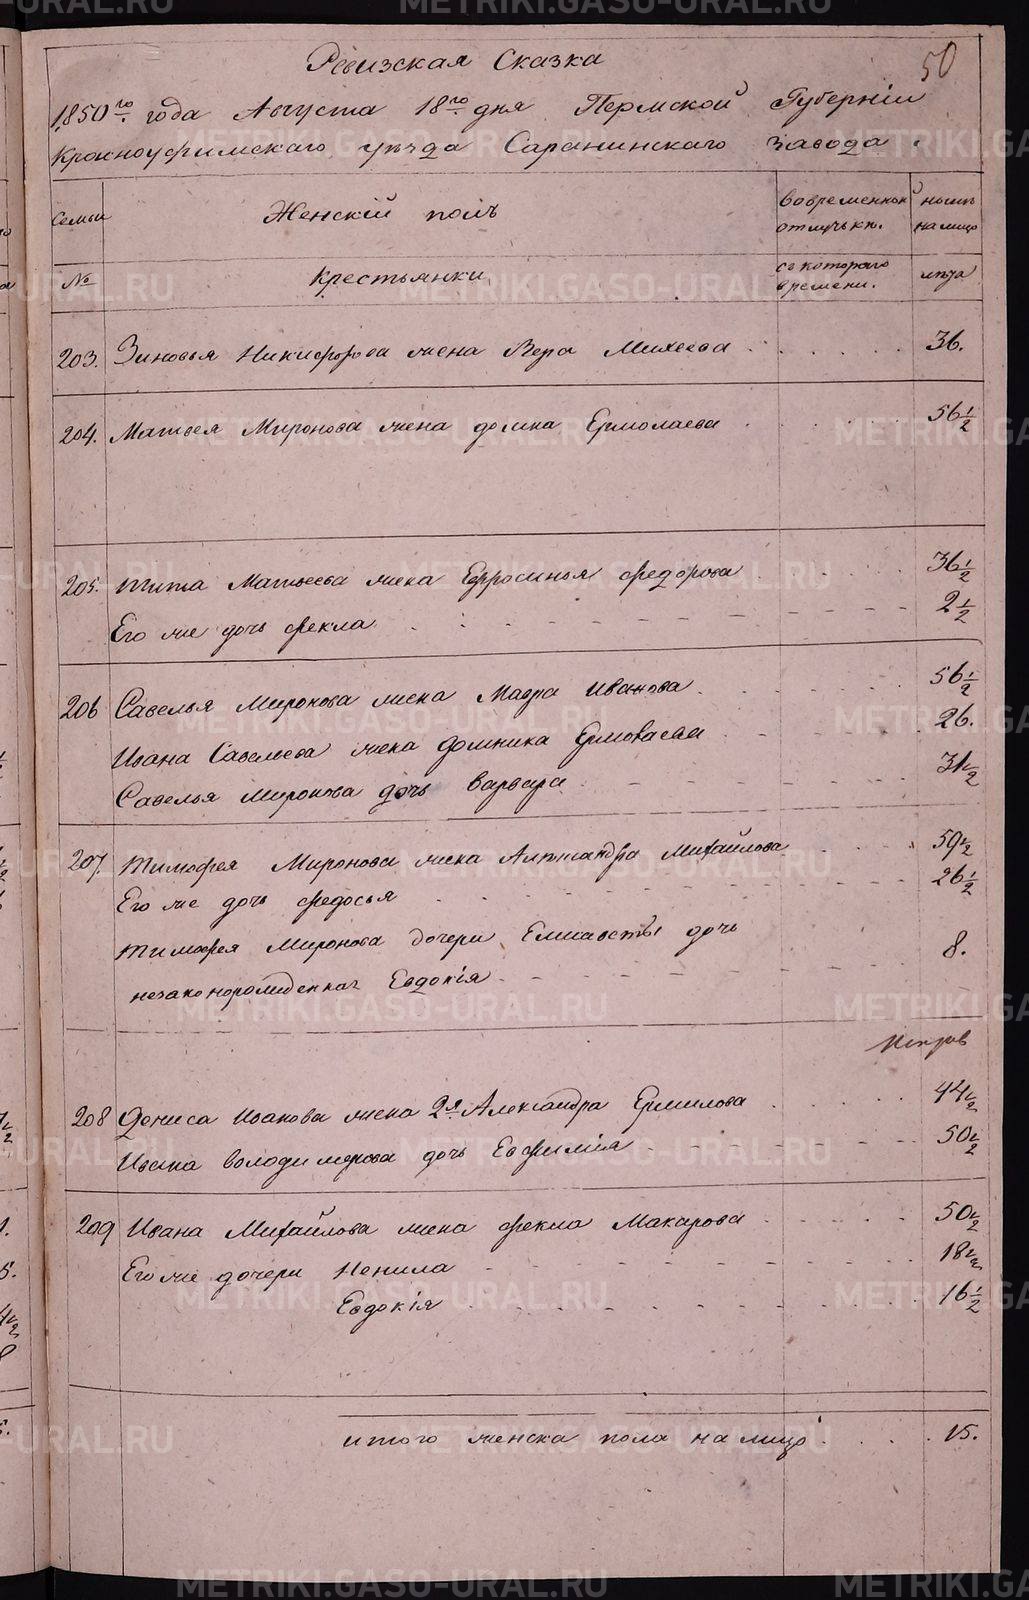 50
Ревизская Сказка
1850го года Августа 18го дня Пермской Губернiи
Красноуфимскаго уѣзда Саранинскаго завода.
Семьи Женскiй полъ во временной нынѣ
отлучькѣ. на лицо
№ крестьянки съ котораго лѣта
времени.
203. Зиновья Никифорова жена Вера Михеева 36.
204. Матвея Миронова жена домна Ермолаева 56 1/2
205. тита Матвеева жена Ефросинья федорова 36 1/2
Его же дочь фекла 2 1/2
206 Савелья Миронова жена Мавра иванова 56 1/2
Ивана Савельева жена домника 26.
Савелья Миронова дочь варвара 31 1/2
207. тимофея Миронова жена Михайлова 59 1/2
Его же дочь федосья 26 1/2
тимофея Миронова дочери Елисаветы дочь
незаконорожденная Евдокiя 8.
208 дениса иванова жена 2я Александра Ермилова 44 1/2
Ивана володимерова дочь Евфимiя 50 1/2
209 Ивана Михайлова жена фекла Макарова 50 1/2
Его же дочери Ненила 18 1/2
Евдокiя 16 1/2
итого женска пола на лицо 15.
METRIKI.GASO-URAL.RU